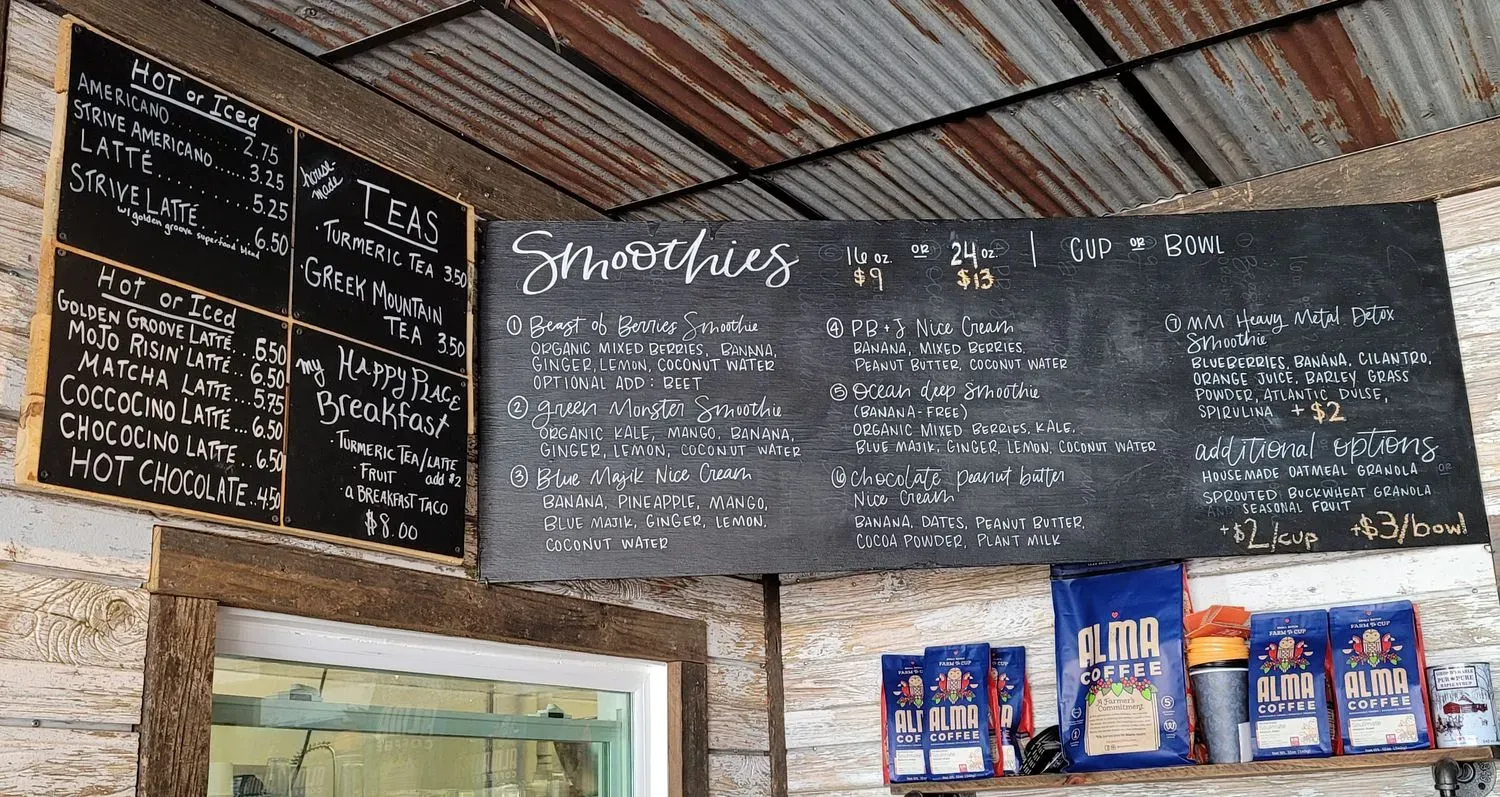 HOT or Iced
AMERICANO........ 2.75
STRIVE AMERICANO...... 3.25
LATTÉ ........ 5.25
STRIVE LATTÉ........ 6.50
w/ golden groove superfood blend
Hot or Iced
GOLDEN GROOVE LATTÉ... 6.50
MOJO RISIN' LATTÉ.. 6.50
MATCHA LATTE.... 5.75
COCCOCINO LATTÉ... 6.50
CHOCOCINO LATTE.. 6.50
HOT CHOCOLATE. 4.50
house-made
TEAS
·TURMERIC TEA 3.50
·GREEK MOUNTAIN
TEA 3.50
my HAPPY PLACE
Breakfast
·TURMERIC TEA/LATTE
add $2
·FRUIT
·a BREAKFAST TACO
$8.00
Smoothies 16 oz. OR 24 oz. | CUP OR BOWL
$9 $13
① Beast of Berries Smoothie
ORGANIC MIXED BERRIES, BANANA,
GINGER, LEMON, COCONUT WATER
OPTIONAL ADD: BEET
② Green Monster Smoothie
ORGANIC KALE, MANGO, BANANA,
GINGER, LEMON, COCONUT WATER
③ Blue Majik Nice Cream
BANANA, PINEAPPLE, MANGO,
BLUE MAJIK, GINGER, LEMON,
COCONUT WATER
④ PB + J Nice Cream
BANANA, MIXED BERRIES,
PEANUT BUTTER, COCONUT WATER
⑤ Ocean deep Smoothie
(BANANA-FREE)
ORGANIC MIXED BERRIES, KALE,
BLUE MAJIK, GINGER, LEMON, COCONUT WATER
⑥ Chocolate peanut butter
Nice Cream
BANANA, DATES, PEANUT BUTTER,
COCOA POWDER, PLANT MILK
⑦ MM Heavy Metal Detox
Smoothie
BLUEBERRIES, BANANA, CILANTRO,
ORANGE JUICE, BARLEY GRASS
POWDER, ATLANTIC DULSE,
SPIRULINA + $2
additional options
HOUSEMADE OATMEAL GRANOLA OR
SPROUTED BUCKWHEAT GRANOLA
AND SEASONAL FRUIT
+$2/cup +$3/bowl
FARM TO CUP
ALMA
COFFEE
ALMA
COFFEE
A Farmer's
Commitment
FARM TO CUP
ALMA
COFFEE
Soulmate
FARM TO CUP
ALMA
COFFEE
Soulmate